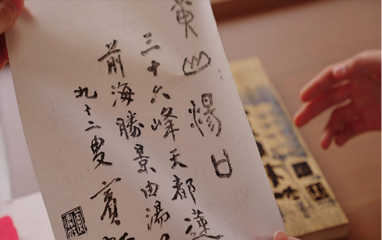 黄山湯口
三十六峰天都蓮
前海勝景由湯
九十二叟賓